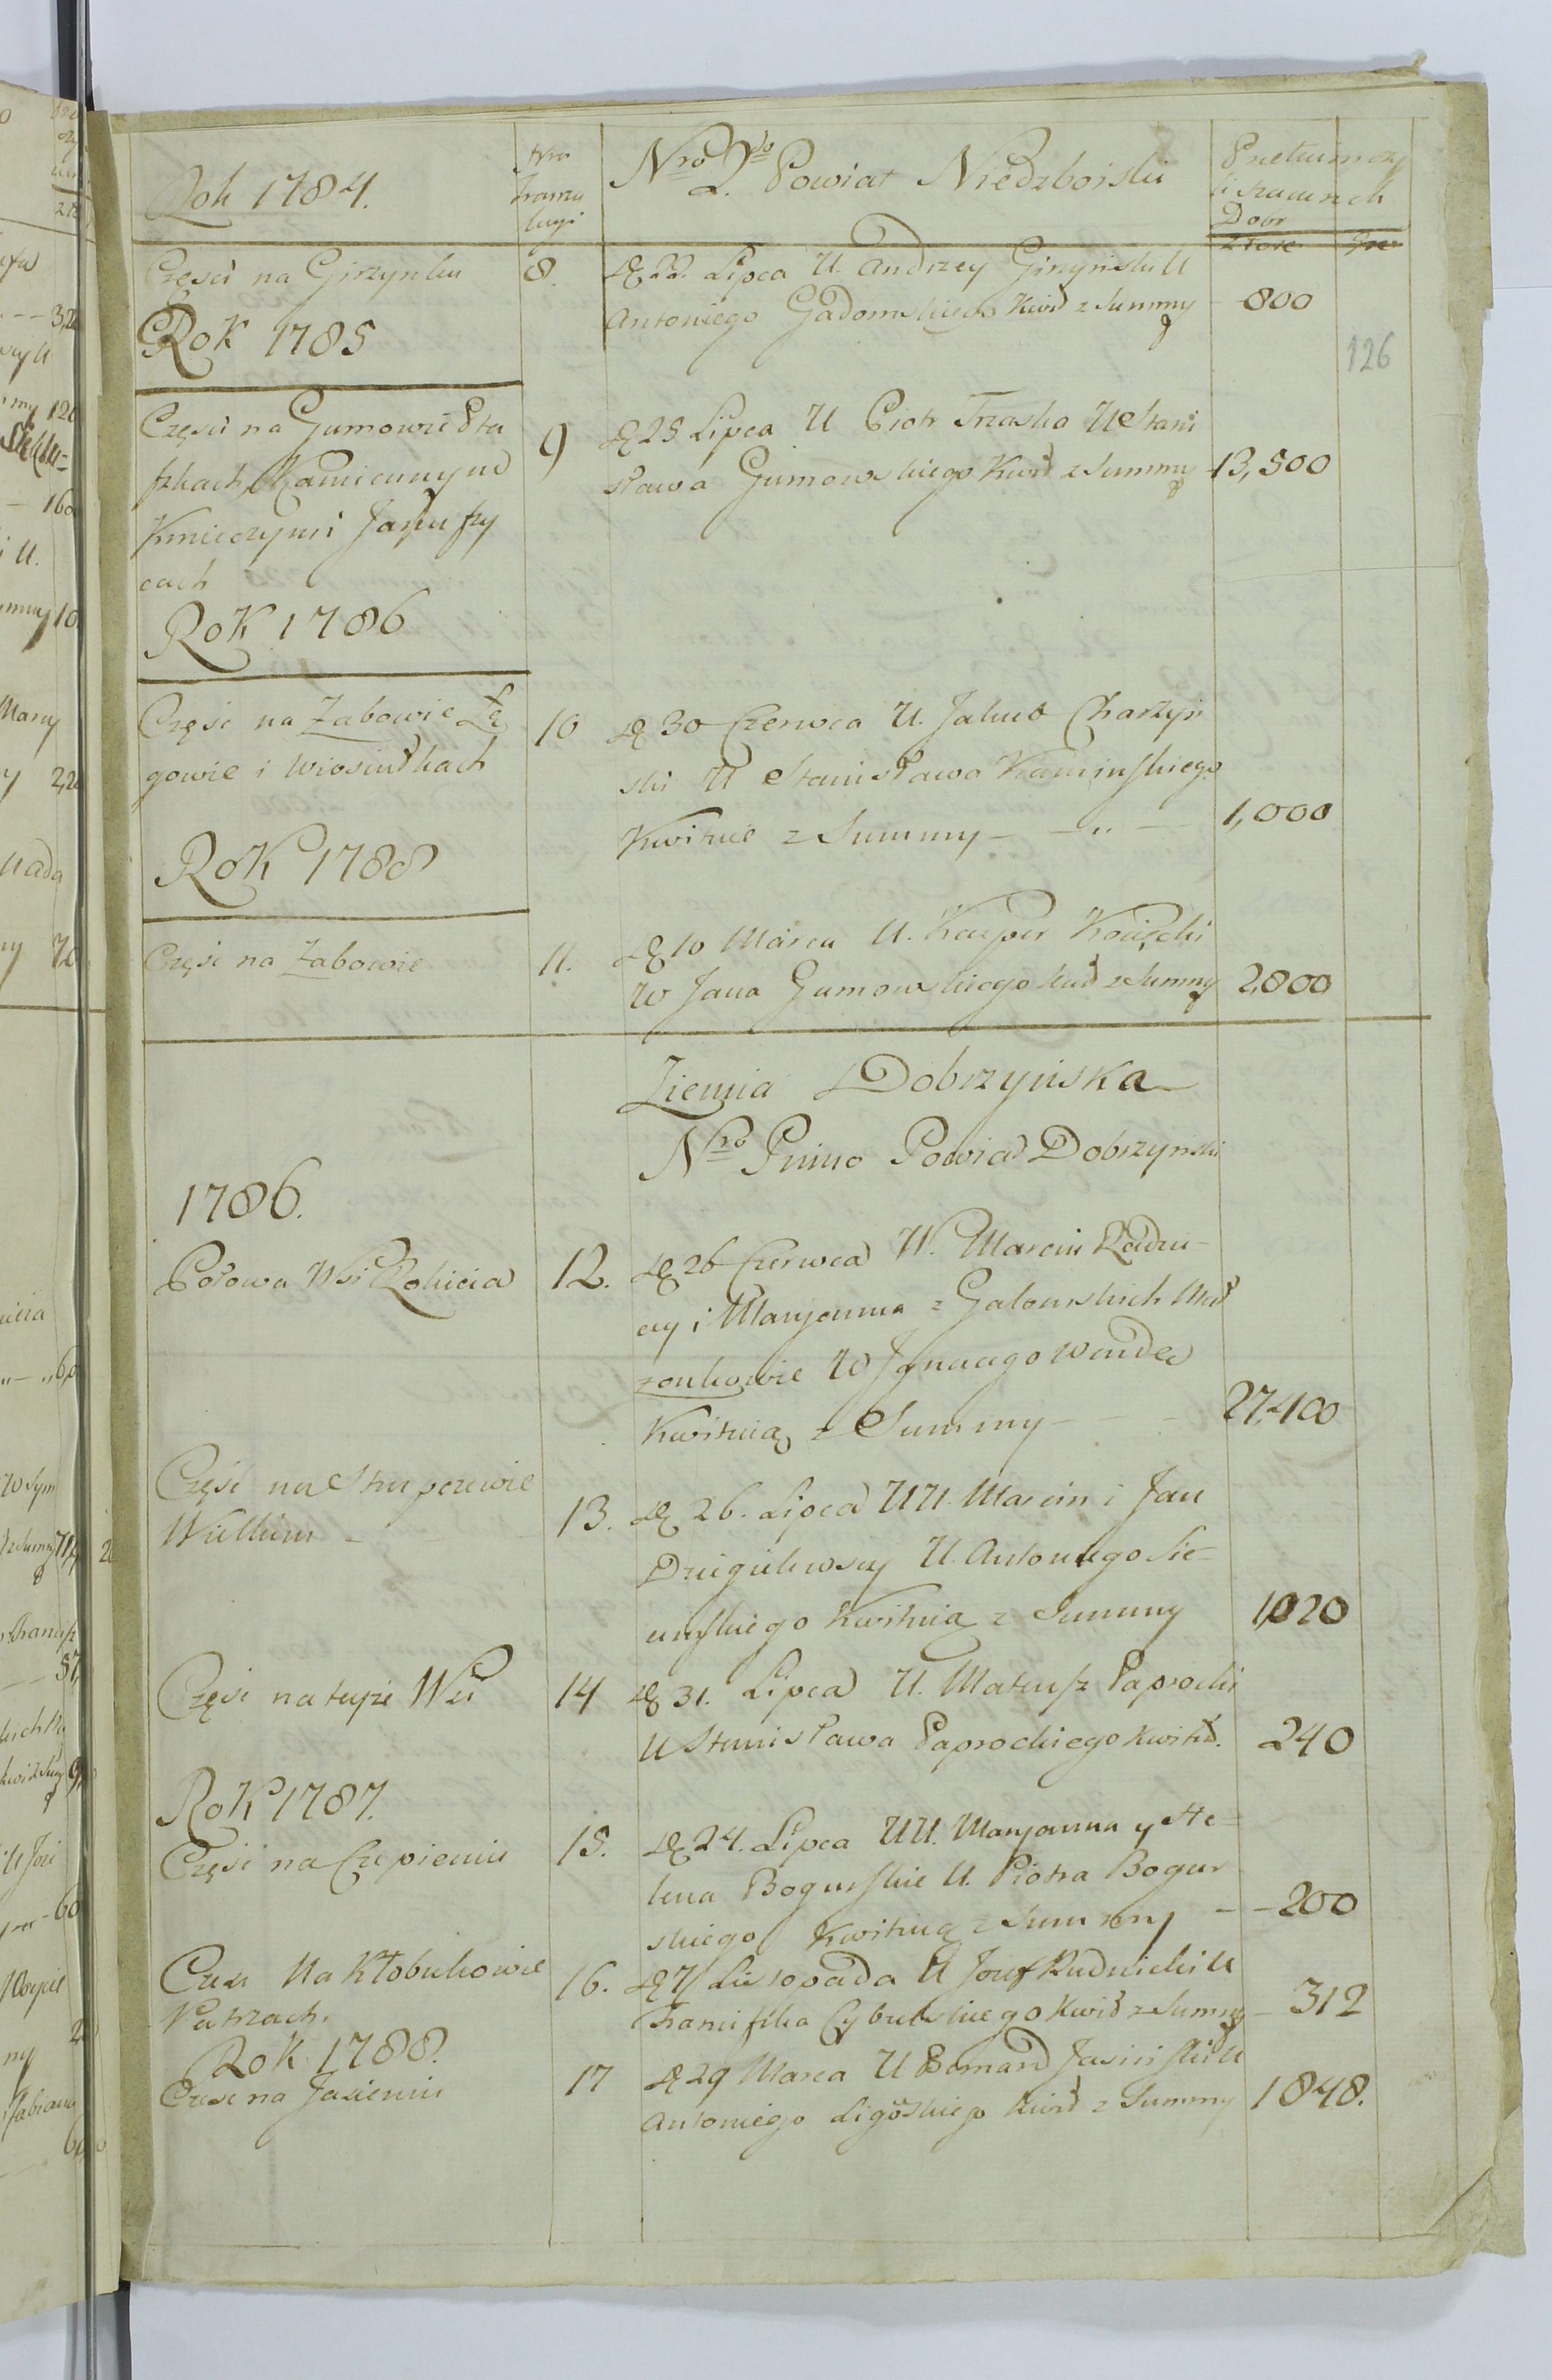 Rok 1784.
Nro
tranza
kcyi
Nro 2do Powiat Niedzborski
Pretium czy
li szacunek
Dobr
Złote Gr
Częsci na Girzynku
8.
D 22. Lipca U. Andrzey Girzynski U
Antoniego Gadomskiego Kwit z Summy
800
Rok 1785
126
Częsci na Gumowie Pta
szkach Kamiennym
Kmieczym i Janu szy
cach
9
D 25 Lipca U Piotr Trzaska U Stani
sława Gumowskiego Kwit z Summy
13,500
Rok 1786
Częsc na Zabowie Łę
gowie i Wiosnitkach
10
D 30 Czerwca U. Jakub Charzyn
ski U Stanisława Kaminskiego
Kwituie z Summy - - „ -
1,000
Rok 1788
Częsc na Zabowie
11.
D 10 Marca U. Kasper
W Jana Gumowskiego kwit z Summy
2,800
Ziemia Dobrzyńska
Nro Primo Powiat Dobrzynski
1786.
Połowa Wsi Rokicia
12.
D 26 Czerwca W. Marcin Radzic-
cy i Maryanna z Galomskich Mał
zonkowie W Jgnacego
Kwituią z Summy - -
27,400
Częsc na Skupczewie
Wielkim -
13.
D 26. Lipca UU. Marcin i Jan
Dzięgielewscy U. Antoniego Sie-
minskiego Kwituią z Summy
1,020
Częsc na teyże Wsi
14
D 31. Lipca U. Mateusz Paprocki
U Stanisława Paprockiego kwit.
240
Rok 1787.
Częsc na Czepieniu
15.
D 24. Lipca UU. Maryanna y He-
lena Bogurskie U. Piotra Bogur
skiego Kwituią z Summy - -
200
Czesc Na Kłobukowie
Patrzach.
16.
D 7 Listopada U Jozef Rudnicki U
Franciszka Cybulskiego Kwit z Summy -
312
Rok 1788.
Czesc na Jasieniu
17
D 29 Marca U Bernard Jasinski U
Antoniego Ligoskiego kwit z Summy
1848.